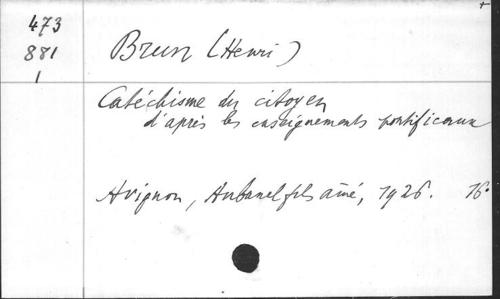 473
881
1
Brun (Henri)
Catéchisme du citoyen
d'après les enseignements pontificaux
Avignon, Aubanel fils aîné, 1926. 16°